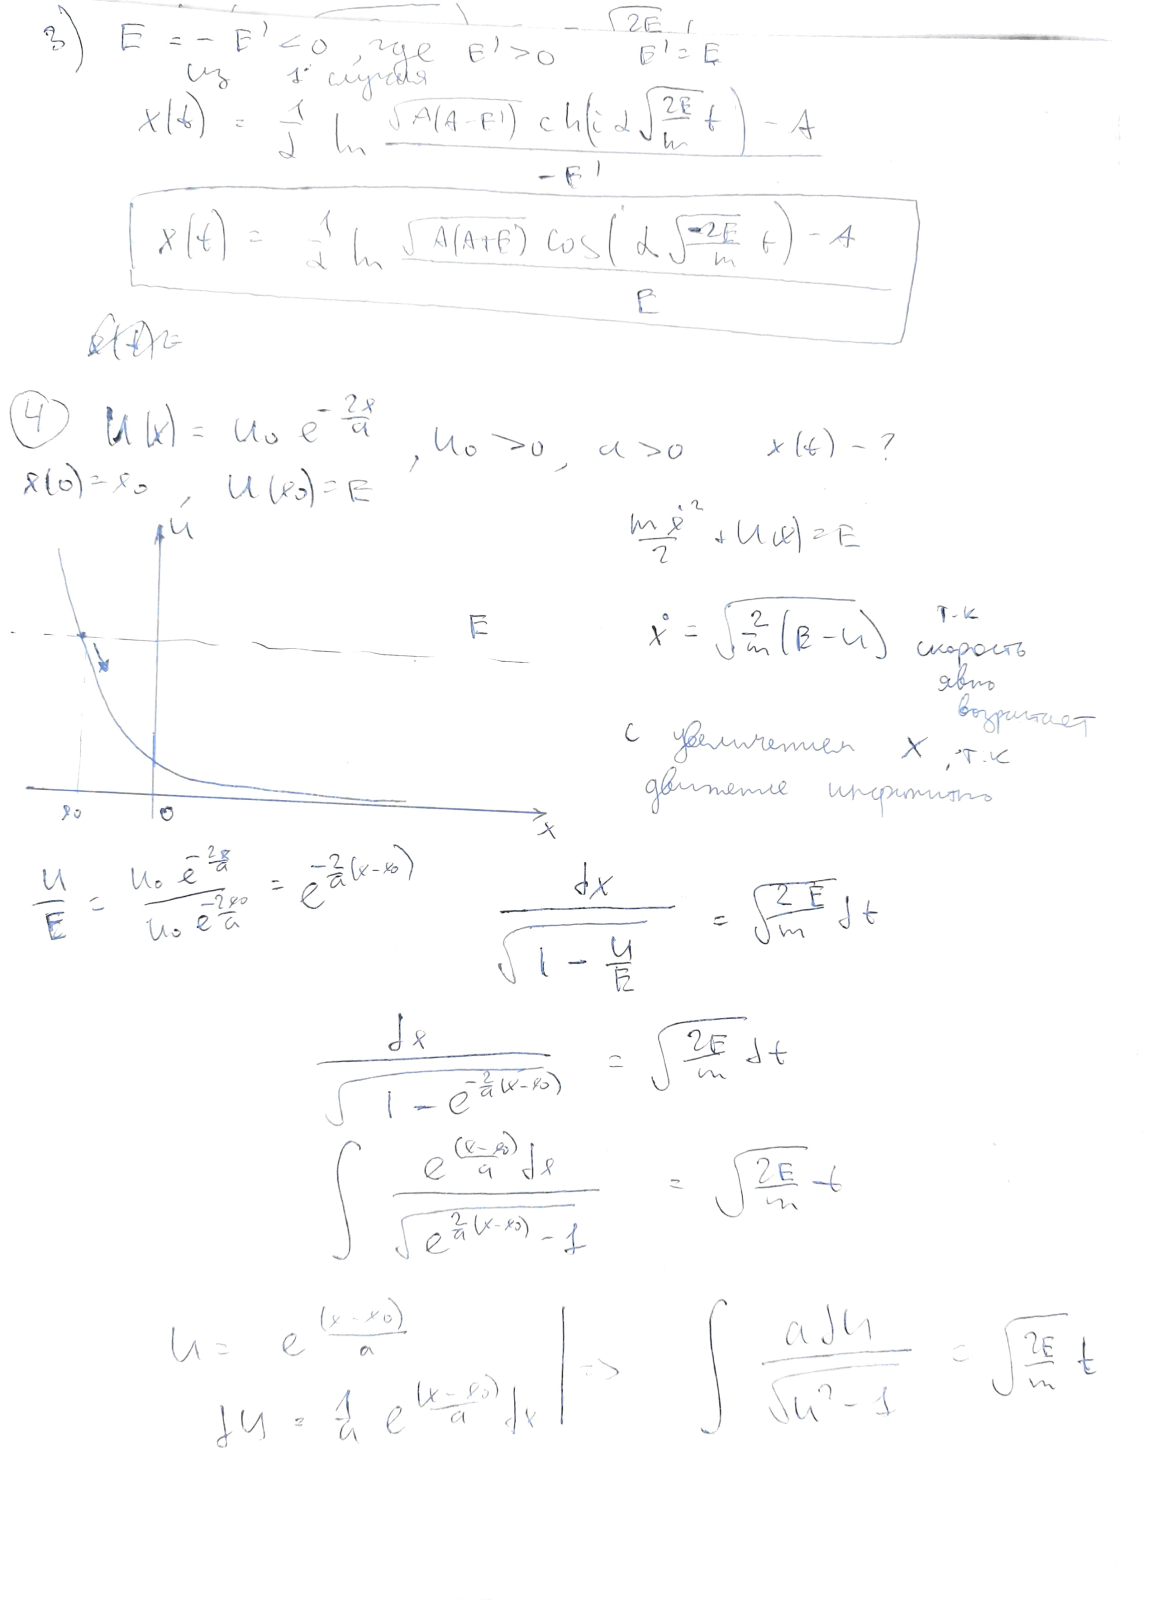 3) E = - E' < 0, где E' > 0 - √(2E) E' = E
из 1 случая
x(t) = 1/α ln (√(A(A-E')) ch(i α √(2E/m) t) - A)/(-E')
x(t) = 1/α ln (√(A(A+E)) cos(α √(-2E/m) t) - A)/E
④ U(x) = U₀ e^(-2x/a), U₀ > 0, a > 0 x(t) - ?
x(0) = x₀, U(x₀) = E
U
mẋ²/2 + U(x) = E
E
ẋ = √(2/m (E - U)) т.к
скорость
явно
возрастает
с увеличением x, т.к
движение инфинитно
x₀ 0 x
U/E = (U₀ e^(-2x/a))/(U₀ e^(-2x₀/a)) = e^(-2/a (x-x₀))
dx/√(1 - U/E) = √(2E/m) dt
dx/√(1 - e^(-2/a (x-x₀))) = √(2E/m) dt
∫ e^((x-x₀)/a) dx/√(e^(2/a (x-x₀)) - 1) = √(2E/m) t
u = e^((x-x₀)/a)
du = 1/a e^((x-x₀)/a) dx | => ∫ a du/√(u² - 1) = √(2E/m) t